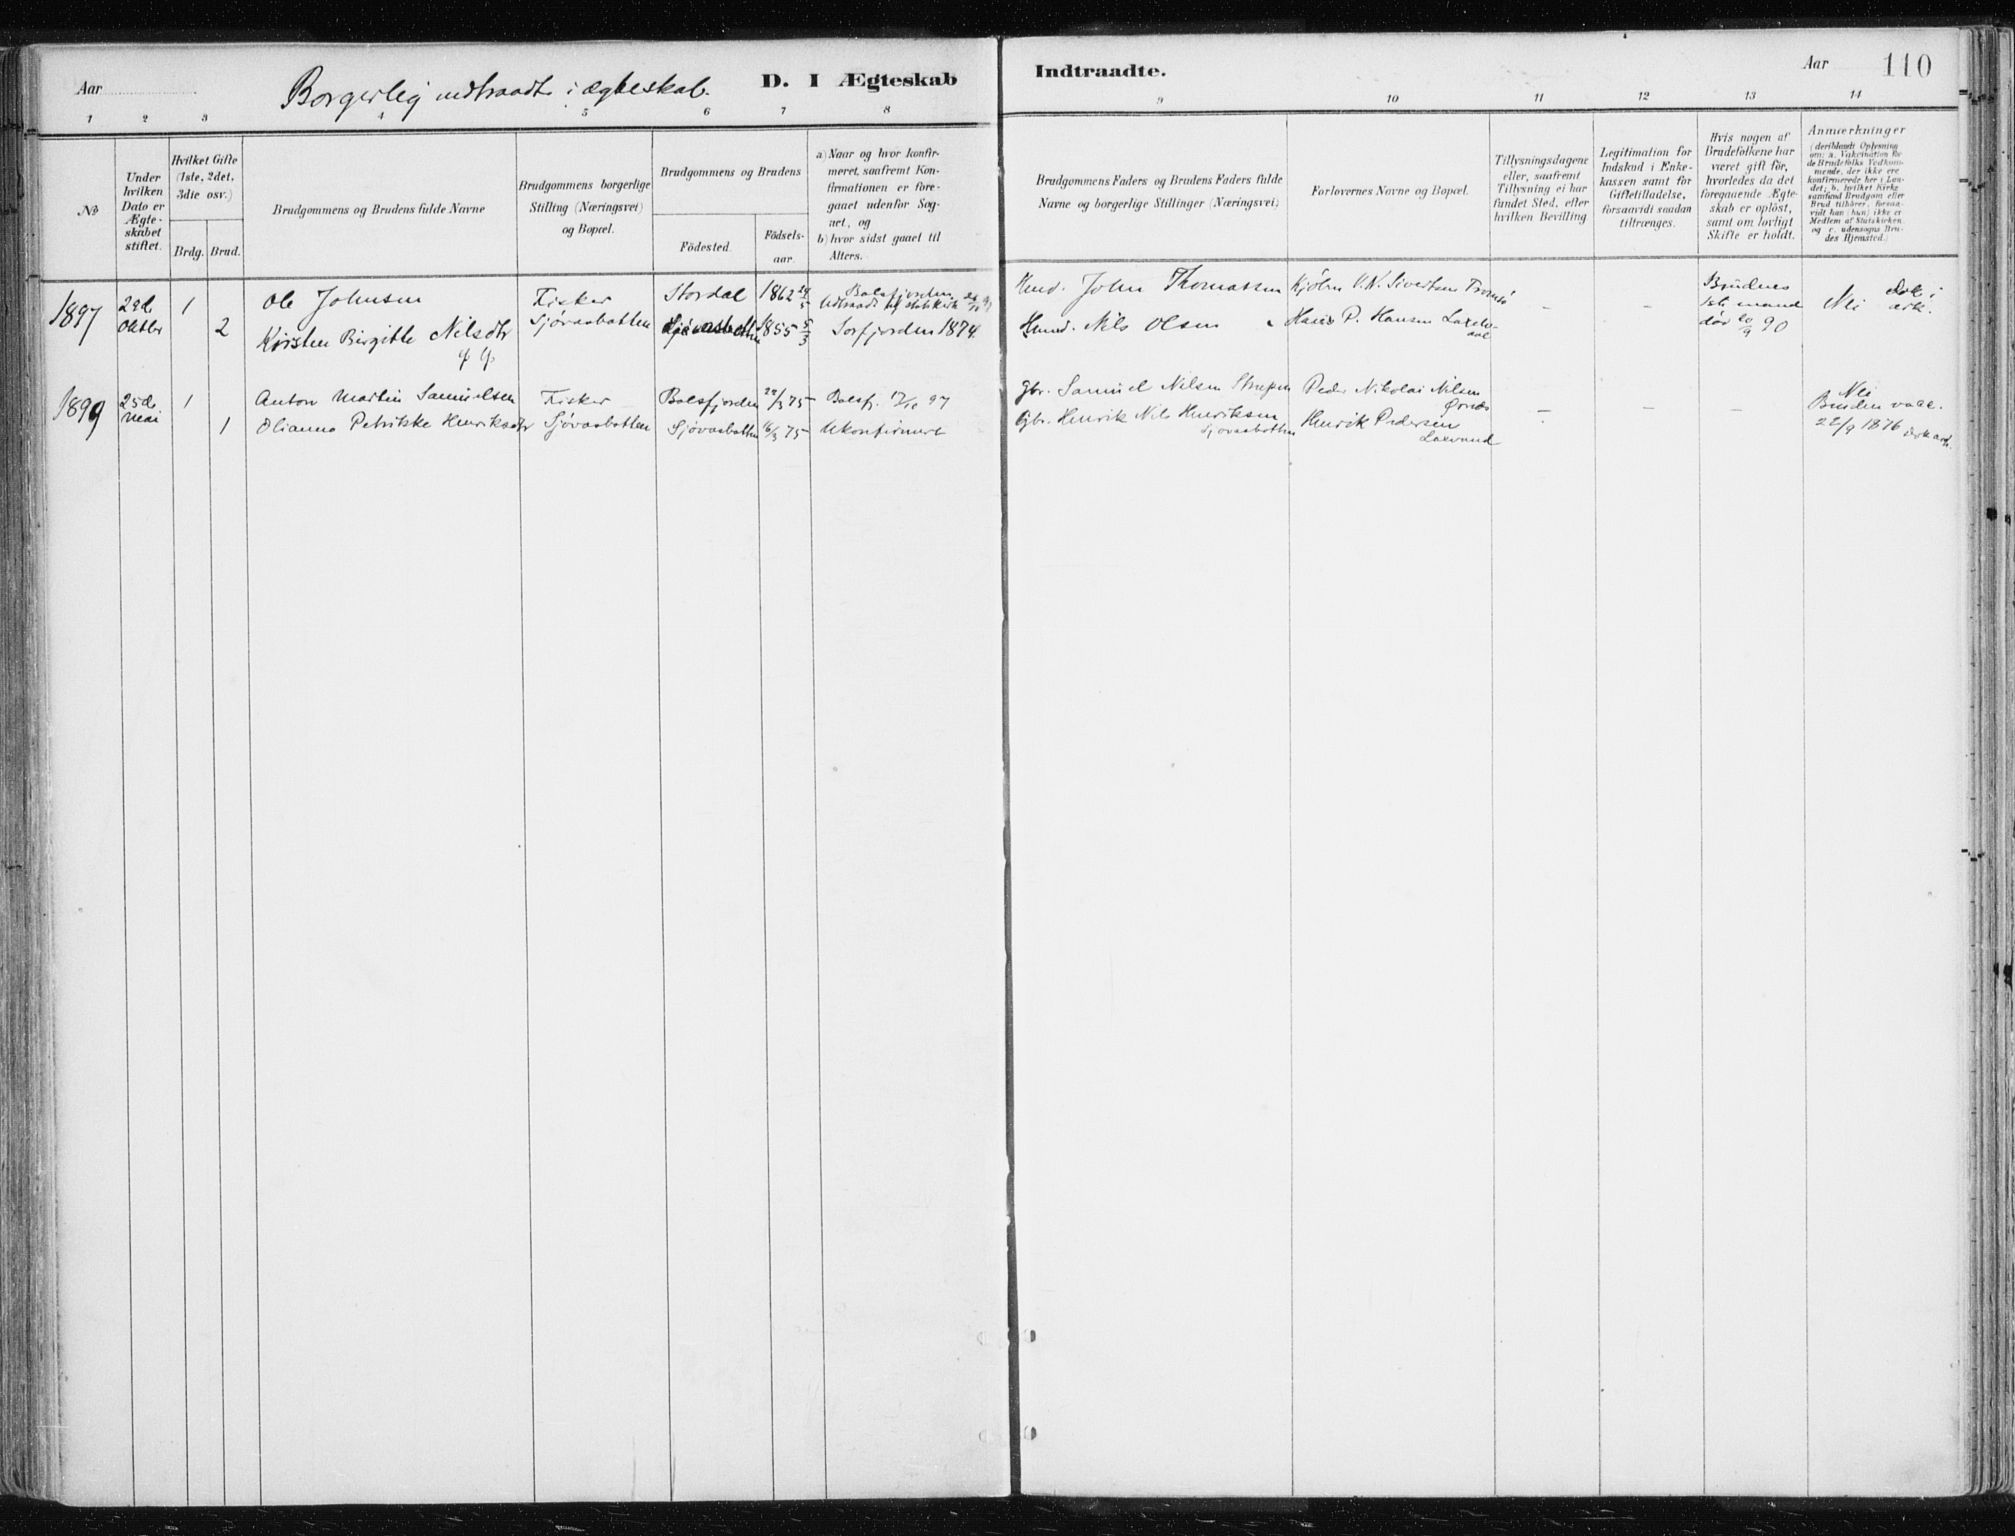 Aar
Borgerlig indtraadte i ægteskab.
D. I Ægteskab
Indtraadte.
Aar
110
1 2 3 4 5 6 7 8 9 10 11 12 13 14
No
Under
hvilken
Dato er
Ægte-
skabet
stiftet.
Hvilket Gifte
(1ste, 2det,
3die osv.)
Brdg. Brud.
Brudgommens og Brudens fulde Navne
Brudgommens borgerlige
Stilling (Næringsvei)
og Bopæl.
Brudgommens og Brudens
Födested.
Födsels-
aar.
a) Naar og hvor konfir-
meret, saafremt Kon-
firmationen er fore-
gaaet udenfor Sog-
net, og
b) hvor sidst gaaet til
Alters.
Brudgommens Faders og Brudens Faders fulde
Navne og borgerlige Stillinger (Næringsvei)
Forlovernes Navne og Bopæl.
Tillysningsdagene
eller, saafremt
Tillysning ei har
fundet Sted, efter
hvilken Bevilling
Legitimation for
Indskud i Enke-
kassen samt for
Giftetilladelse,
forsaavidt saadan
tiltrænges.
Hvis nogen af
Brudefolkene har
været gift för,
hvorledes da det
foregaaende Ægte-
skab er oplöst,
samt om lovligt
Skifte er holdt.
Anmærkninger
(deriblandt Oplysning
om: a. Vakcination for
de Brudefolks Vedkom-
mende, der ikke ere
konfirmerede her i Lan-
det; b. hvilket Kirke-
samfund Brudgom eller
Brud tilhörer, forsaa-
vidt han (hun) ikke er
Medlem af Statskirken,
og c. udensogns Bru-
des Hjemsted.)
1897 29de Oktbr 1 Ole Johnsen Fisker Stordal 1862 24/5 Balsfjorden
Indtraadt af statskirk
Hmd. John Thomassen Kjøbm V. K. Sivertsen Tromsø – – Brudens 1ste mand død 20/9 90 Nei Dok i ark.
2 Kirsten Birgitte Nilsdtr Sjøvasbotten Sjøvasbotten 1855 5/3 Sorfjorden 1874.
Hmd. Nils Olsen Hans P. Hansen
1899 25de Mai 1 Anton Martin Samuelsen Fisker Balsfjorden 22/3 75 Balsfj. 17/10 97
Gbr. Samuel Nilsen Peder Nikolai Nilsen – – – Nei
1 Olianna Petrikke Henriksdtr Sjøvasbotten Sjøvasbotten 16/3 75 Ukonfirmert
Gbr. Henrik Nils Henriksen
Sjøvasbotten
Henrik Pedersen
Laxvund
Bruden vacc.
22/9 1876 dok ark.